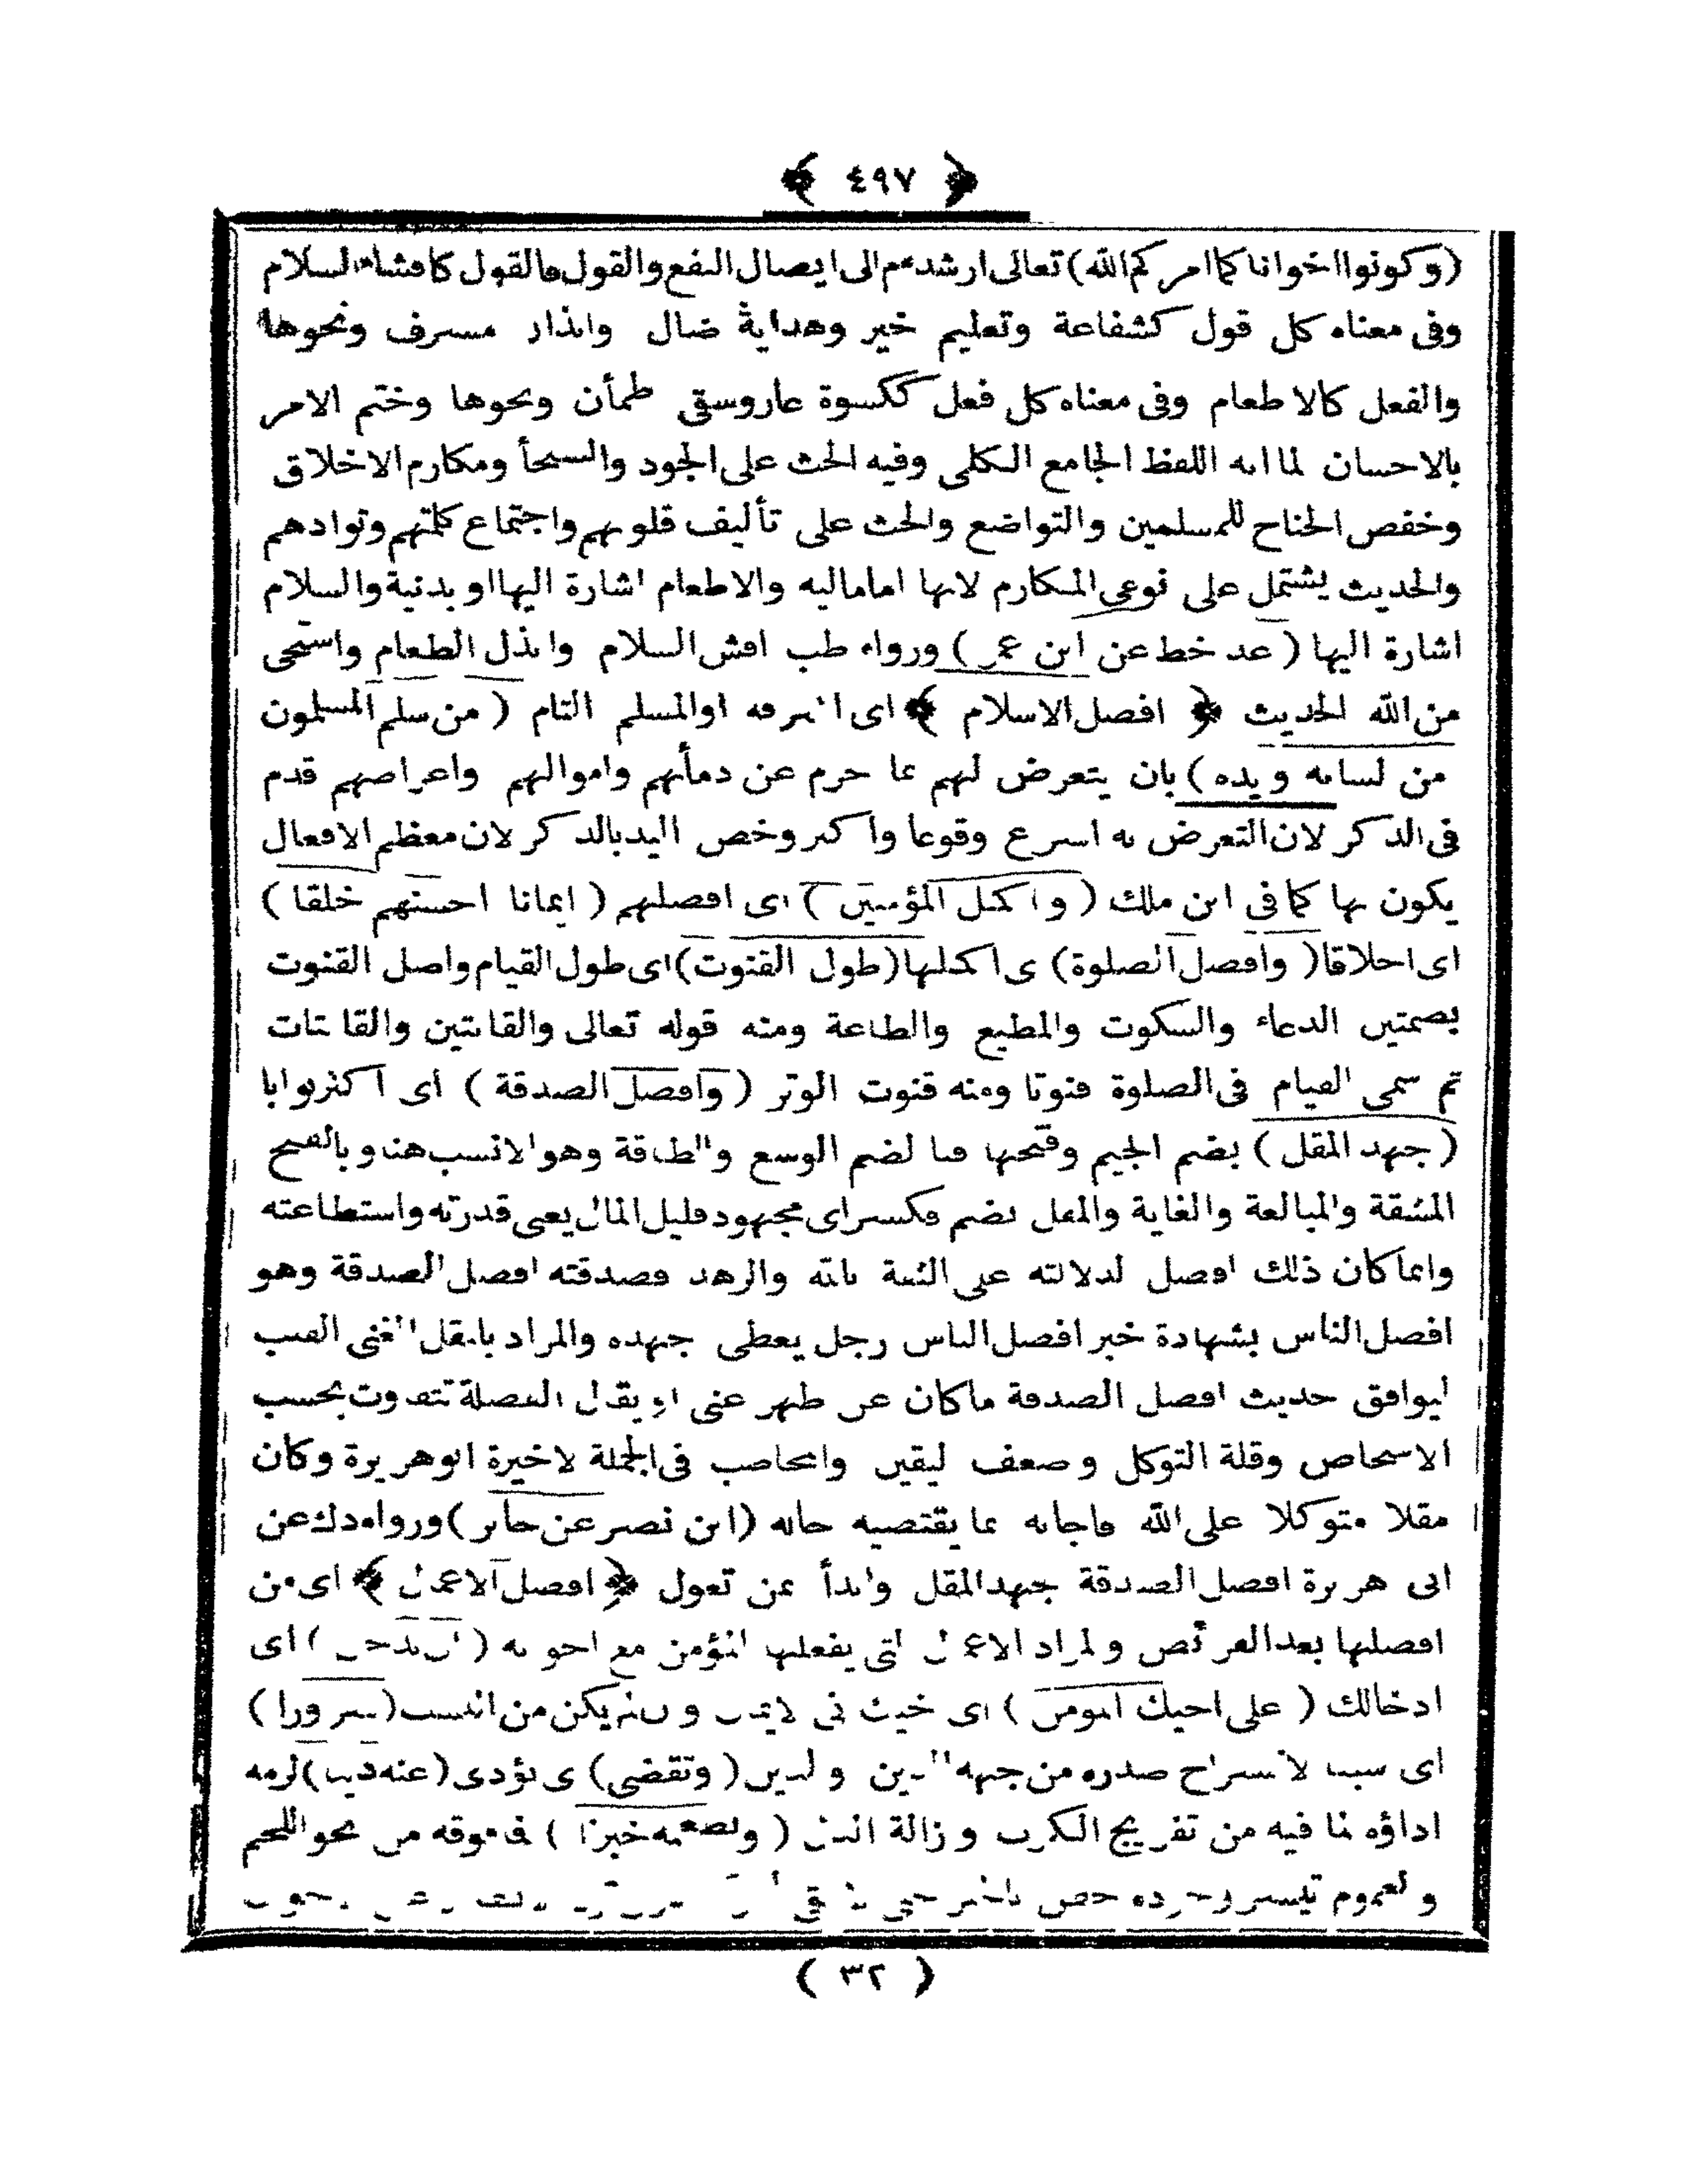 ﴿ ٤٩٧ ﴾
(وكونوا اخوانا كما امركم الله) تعالى ارشدهم الى ايصال النفع والقول فالقول كافشاء السلام
وفى معناه كل قول كشفاعة وتعليم خير وهداية ضال وانذار مسرف ونحوها
والفعل كالاطعام وفى معناه كل فعل ككسوة عار وسقى ظمأن ونحوها وختم الامر
بالاحسان لما انه اللفظ الجامع الكلى وفيه الحث على الجود والسخأ ومكارم الاخلاق
وخفض الجناح للمسلمين والتواضع والحث على تأليف قلوبهم واجتماع كلمتهم وتوادهم
والحديث يشتمل على نوعى المكارم لانها اما مالية والاطعام اشارة اليها او بدنية والسلام
اشارة اليها (عد خط عن ابن عمر) ورواه طب افش السلام وابذل الطعام واستحى
من الله الحديث ﴿ افضل الاسلام ﴾ اى او المسلم التام (من سلم المسلمون
من لسانه ويده) بان يتعرض لهم بما حرم عن دمأئهم واموالهم واعراضهم قدم
فى الذكر لان التعرض به اسرع وقوعا واكثر وخص اليد بالذكر لان معظم الافعال
يكون بها كما فى ابن ملك (واكمل المؤمنين) اى افضلهم (ايمانا احسنهم خلقا)
اى اخلاقا (وافضل الصلوة) اى اكملها (طول القنوت) اى طول القيام واصل القنوت
بصمتين الدعاء والسكوت والمطيع والطاعة ومنه قوله تعالى والقانتين والقانتات
ثم سمى القيام فى الصلوة قنوتا ومنه قنوت الوتر (وافضل الصدقة) اى اكثر ثوابا
(جهد المقل) بضم الجيم وفتحها فبا لضم الوسع والطاقة وهو الانسب هنا وبالفتح
المشقة والمبالغة والغاية والمقل بضم فكسر اى مجهود قليل المال يعنى قدرته واستطاعته
وانما كان ذلك افضل لدلالته على الثقة بالله والزهد فصدقته افضل الصدقة وهو
افضل الناس بشهادة خبر افضل الناس رجل يعطى جهده والمراد بالمقل الغنى القلب
ليوافق حديث افضل الصدقة ماكان عن ظهر غنى او يقال الفضلة تتفاوت بحسب
الاشخاص وقلة التوكل وضعف اليقين والمخاطب فى الجملة الاخيرة ابو هريرة وكان
مقلا متوكلا على الله فاجابه بما يقتضيه حاله (ابن نصر عن جابر) ورواه دك عن
ابى هريرة افضل الصدقة جهد المقل وابدأ بمن تعول ﴿ افضل الاعمال ﴾ اى من
افضلها بعد الفرائض والمراد الاعمال التى يفعلها المؤمن مع اخوانه (ان تدخل) اى
ادخالك (على اخيك المؤمن) اى يكن من النسب (سرورا)
اى سببا لانشراح صدره من جهة الدين والدين (وتقضى) اى تؤدى (عنه دينا) لزمه
اداؤه لما فيه من تفريج الكرب وازالة الذل (وتطعمه خبزا) فما فوقه من نحو اللحم
ولعموم تيسر وجوده خص
( ٣٢ )